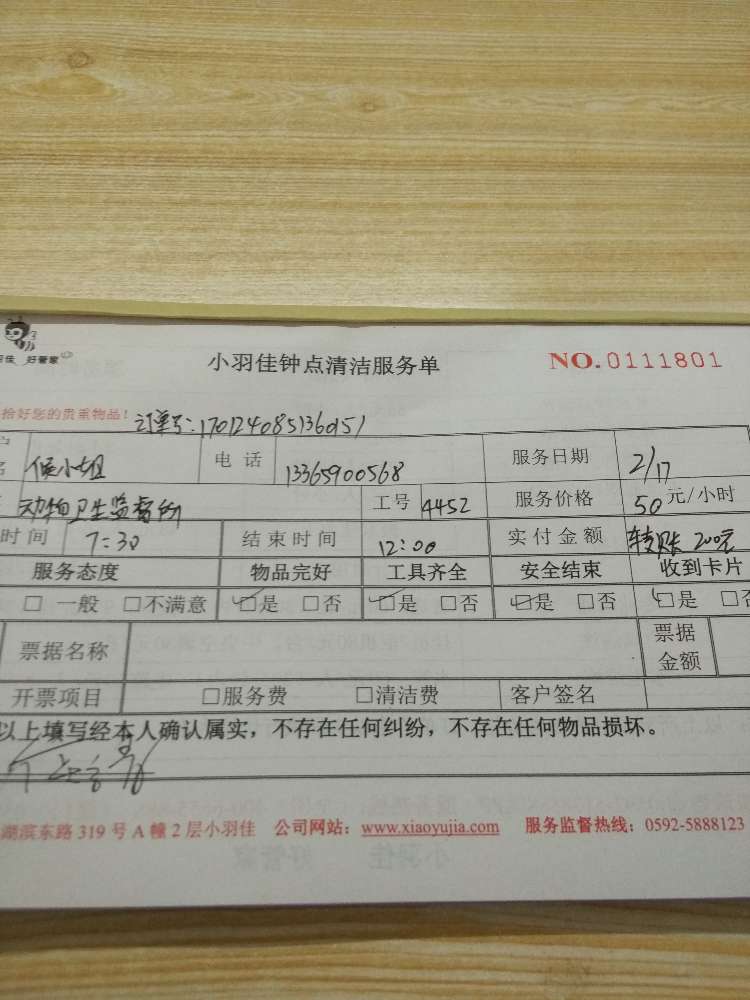 好管家
小羽佳钟点清洁服务单 NO.0111801
拾好您的贵重物品! 订单号:1701240851360151
侯小姐 电话 13365900568 服务日期 2/17
动物卫生监督所 工号 4452 服务价格 50元/小时
时间 7:30 结束时间 12:00 实付金额 转账 200元
服务态度 物品完好 工具齐全 安全结束 收到卡片
□ 一般 □不满意 ☑是 □否 ☑是 □否 ☑是 □否 ☑是 □否
票据名称 票据金额
开票项目 □服务费 □清洁费 客户签名
以上填写经本人确认属实，不存在任何纠纷，不存在任何物品损坏。
湖滨东路 319 号 A 幢 2 层小羽佳 公司网站：www.xiaoyujia.com 服务监督热线：0592-5888123